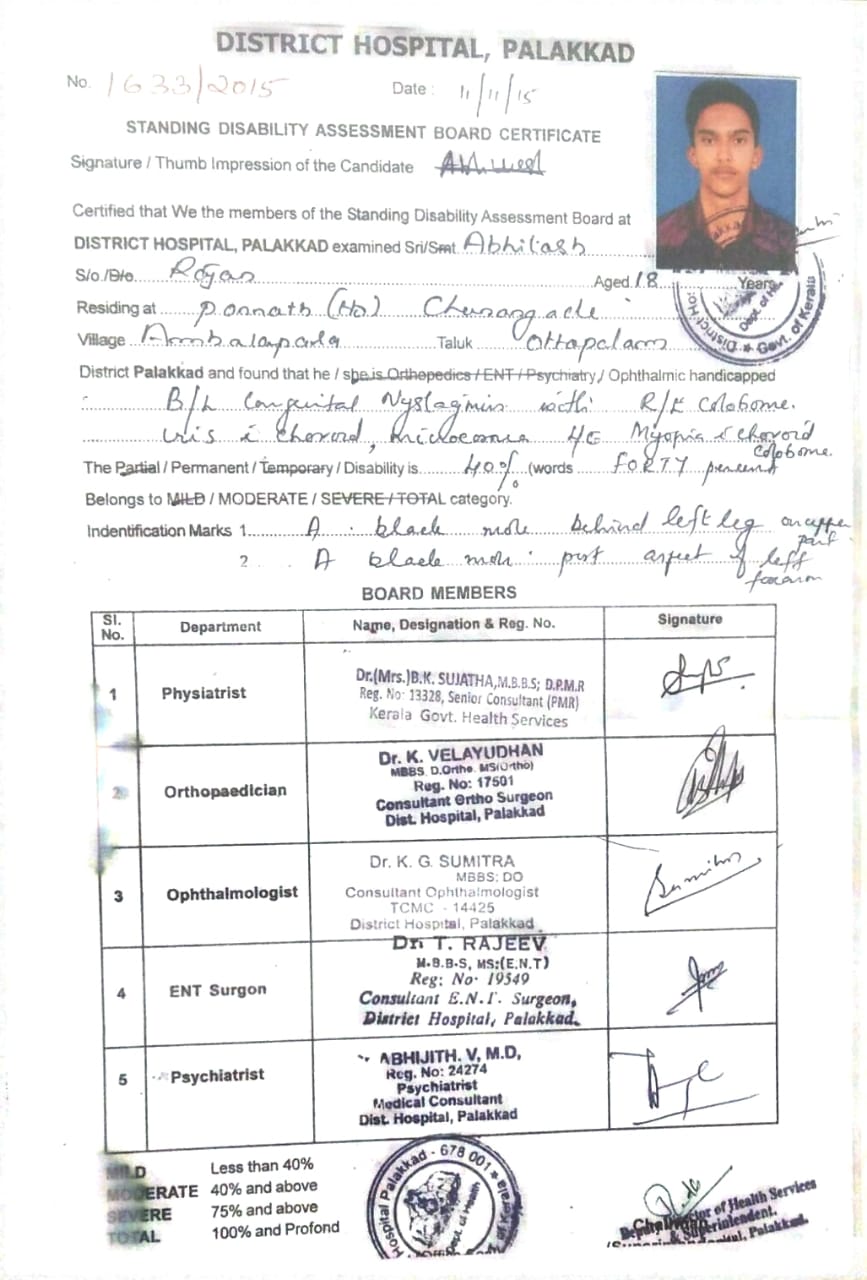 DISTRICT HOSPITAL, PALAKKAD
No. 1633/2015 Date : 11/11/15
STANDING DISABILITY ASSESSMENT BOARD CERTIFICATE
Signature / Thumb Impression of the Candidate
Certified that We the members of the Standing Disability Assessment Board at
DISTRICT HOSPITAL, PALAKKAD examined Sri/Smt. Abhilash
S/o./D/o. Rajan Aged 18 Years
Residing at Ponnath (Ho)
Village Ambalapada Taluk Ottapalam
District Palakkad and found that he / she is Orthopedics / ENT / Psychiatry / Ophthalmic handicapped
B/L Congenital Nystagmus with R/E Colobome.
Iris c choroid, microcornea Myopia c choroid
colobome.
The Partial / Permanent / Temporary / Disability is 40% (words FORTY percent
Belongs to MILD / MODERATE / SEVERE / TOTAL category.
Indentification Marks 1. A black mole behind left leg on upper
part
2 A black mole post aspect of left
forearm
BOARD MEMBERS
Sl. No. Department Name, Designation & Reg. No. Signature
1 Physiatrist Dr.(Mrs.)B.K. SUJATHA,M.B.B.S; D.P.M.R
Reg. No: 13328, Senior Consultant (PMR)
Kerala Govt. Health Services
2 Orthopaedician Dr. K. VELAYUDHAN
MBBS, D.Ortho. MS(Ortho)
Reg. No: 17501
Consultant Ortho Surgeon
Dist. Hospital, Palakkad
3 Ophthalmologist Dr. K. G. SUMITRA
MBBS: DO
Consultant Ophthalmologist
TCMC - 14425
District Hospital, Palakkad
Sumitra
4 ENT Surgon Dr. T. RAJEEV
M.B.B.S, MS:(E.N.T)
Reg: No. 19549
Consultant E.N.T. Surgeon,
District Hospital, Palakkad.
5 Psychiatrist ABHIJITH. V, M.D,
Reg. No: 24274
Psychiatrist
Medical Consultant
Dist. Hospital, Palakkad
MILD Less than 40%
MODERATE 40% and above
SEVERE 75% and above
TOTAL 100% and Profond
Hospital Palakkad - 678 001
Dept. of Health
Govt. of Kerala
District Ho
Chairman
Deputy Director of Health Services
& Superintendent.
Palakkad.